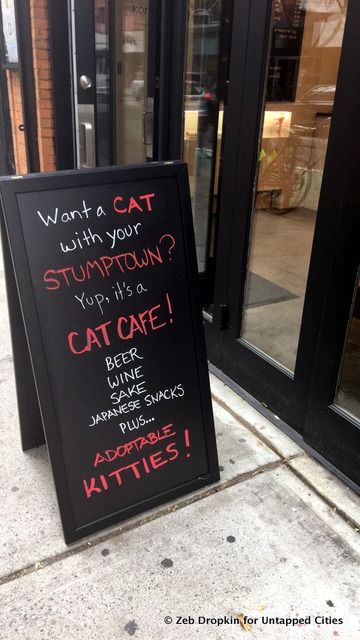 Want a CAT
with your
STUMPTOWN?
Yup, it's a
CAT CAFE!
BEER
WINE
SAKE
JAPANESE SNACKS
PLUS...
ADOPTABLE
KITTIES!
© Zeb Dropkin for Untapped Cities